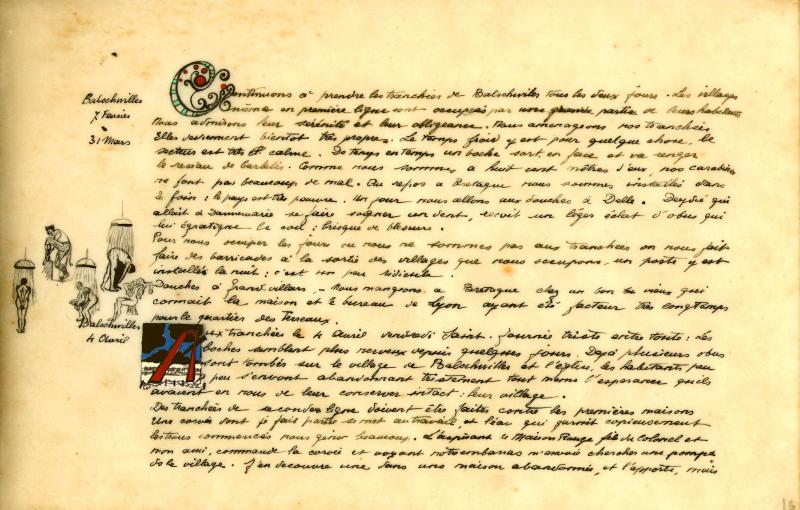 Balschwilles
7 Fevrier
31 Mars
Continuons à prendre les tranchées de Balschwiles tous les deux jours. Les villages
même en première ligne sont occupés par une grande partie de leurs habitants
Nous admirons leur sérénité et leur allégeance. Nous aménageons nos tranchées
Elles deviennent bientôt très propres. Le temps froid y est pour quelque chose, le
secteur est très calme. De temps en temps un boche sort, en face et va ranger
le reseau de barbelés. Comme nous sommes à huit cent mètres d'eux, nos carabines
ne font pas beaucoup de mal. Au repos à Bretagne nous sommes installés dans
le foin; le pays est très pauvre. Un jour nous allons aux douches à Delle. Deydié qui
allait à Dannemarie se faire soigner un dent, reçoit un léger éclat d'obus qui
lui égratigne le cou; brisque de blessure.
Pour nous occuper les jours ou nous ne sommes pas aux tranchées on nous fait
faire des barricades à la sortie des villages que nous occupons, un poste y est
installé la nuit; c'est un peu ridicule.
Douches à Grandvillars. Nous mangeons à Bretagne chez un bon vieux qui
connait la maison et le bureau de Lyon ayant été facteur très longtemps
pour le quartier des Terreaux.
Balschwilles
4 Avril
Aux tranchées le 4 Avril vendredi Saint. Journée triste entre toute: Les
boches semblent plus nerveux depuis quelques jours. Dejà plusieurs obus
sont tombés sur le village de Balschwilles et l'église, les habitants peu
à peu s'en vont abandonnant tristement tout meme l'esperance qu'ils
avaient en nous de leur conserver intact leur village.
Des tranchées de seconde ligne doivent être faites contre les premières maisons
Une corvée dont je fais partie se met au travail, et l'eau qui garnit copieusement
les trous commencés nous gêne beaucoup. L'aspirant de Maison Rouge fils du Colonel et
mon ami, commande la corvée et voyant notre embarras m'envoie chercher une pompe
de le village. J'en decouvre une dans une maison abandonnée, et l'apporte, mais
15